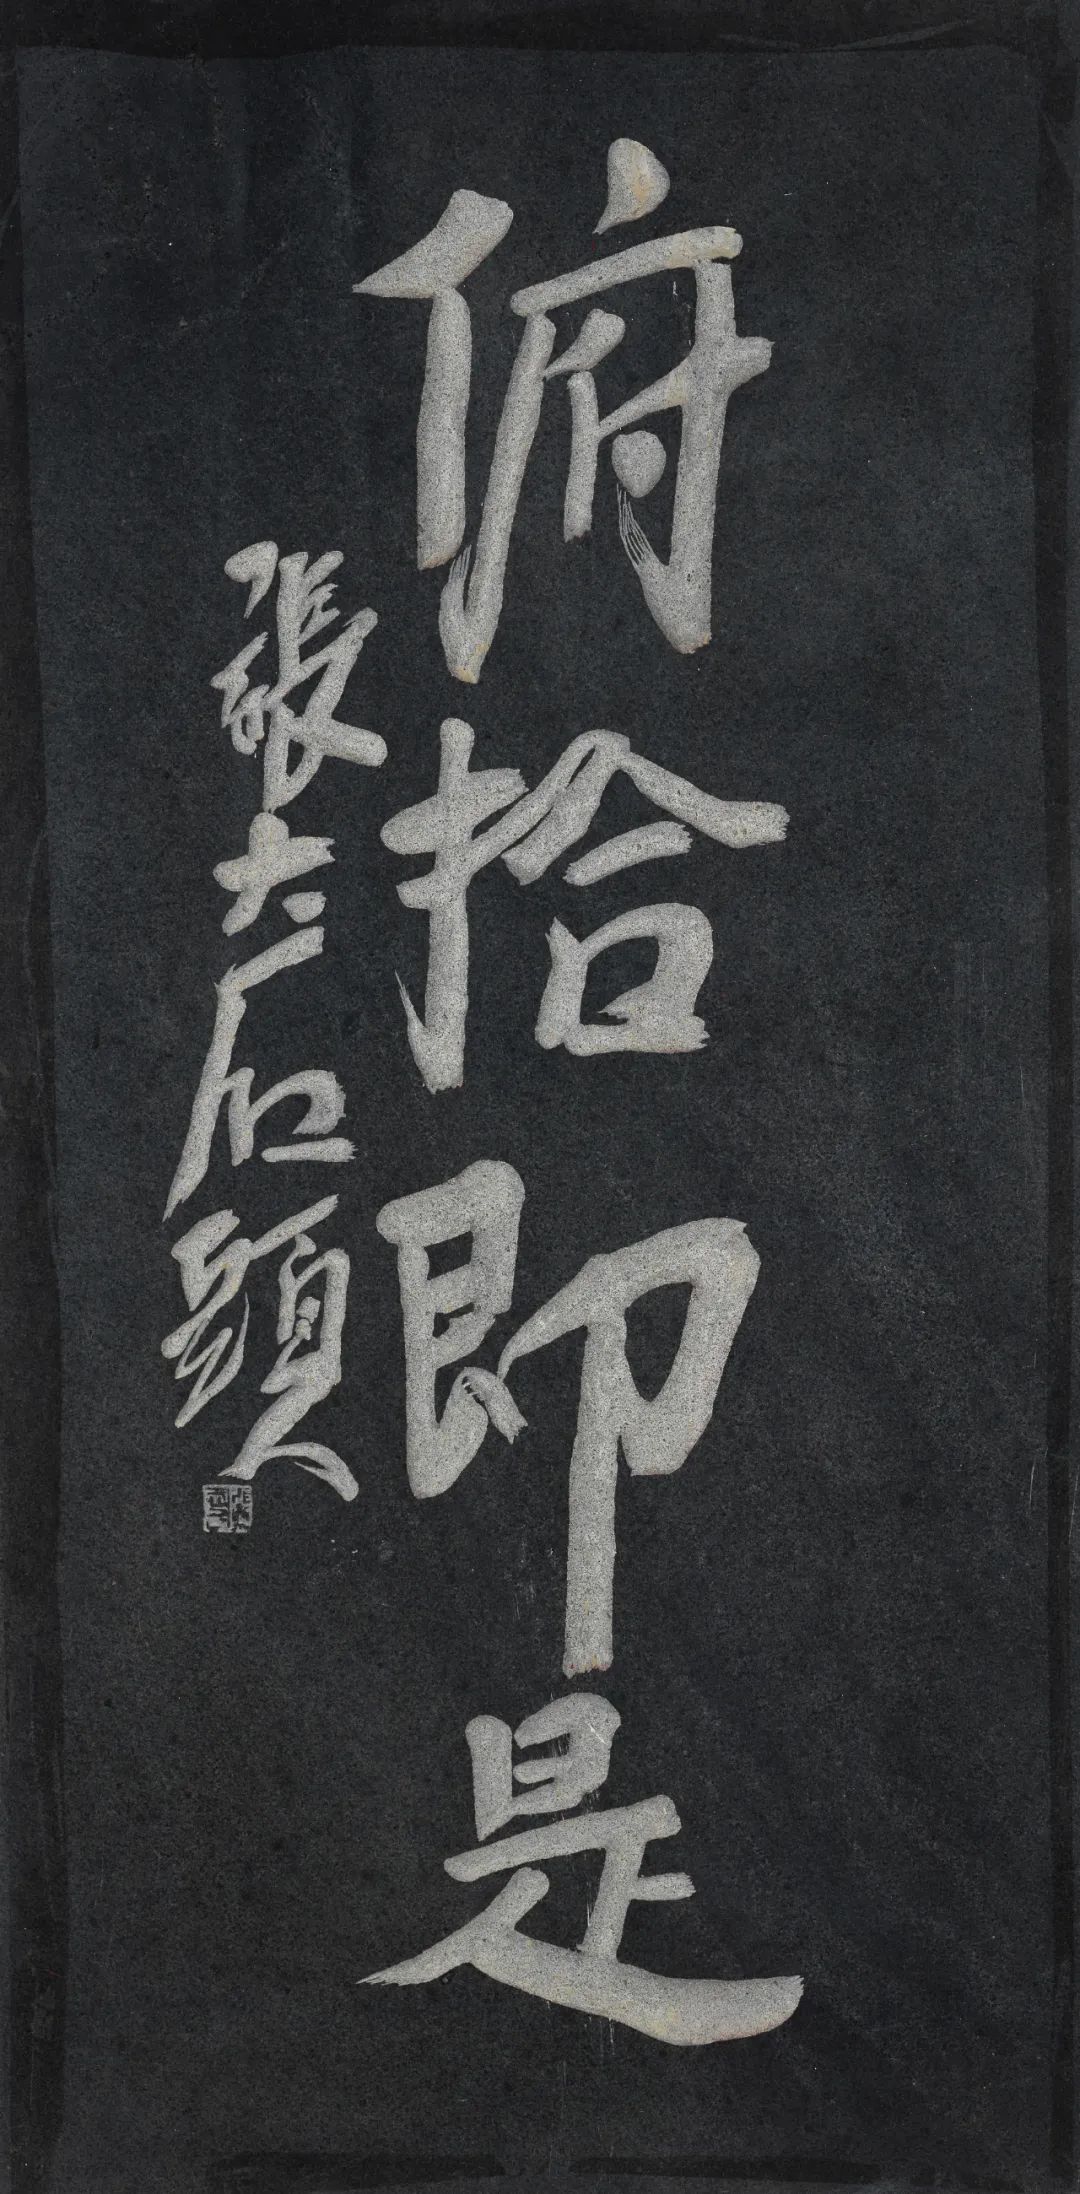 俯拾即是
張大石頭